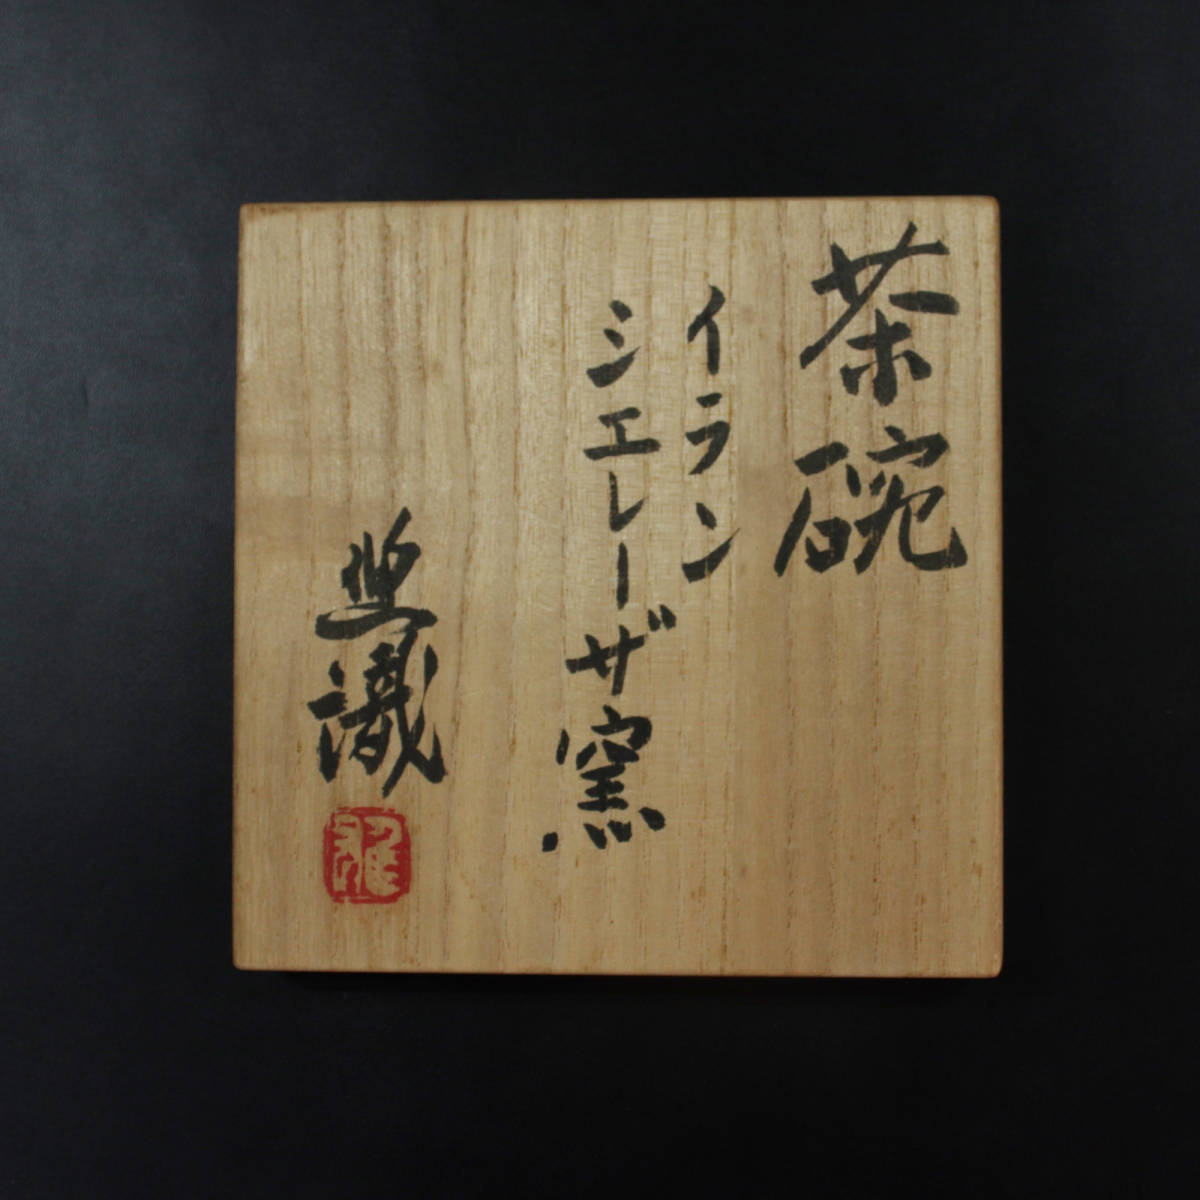 茶碗
イラン
シエレーザ窯
識